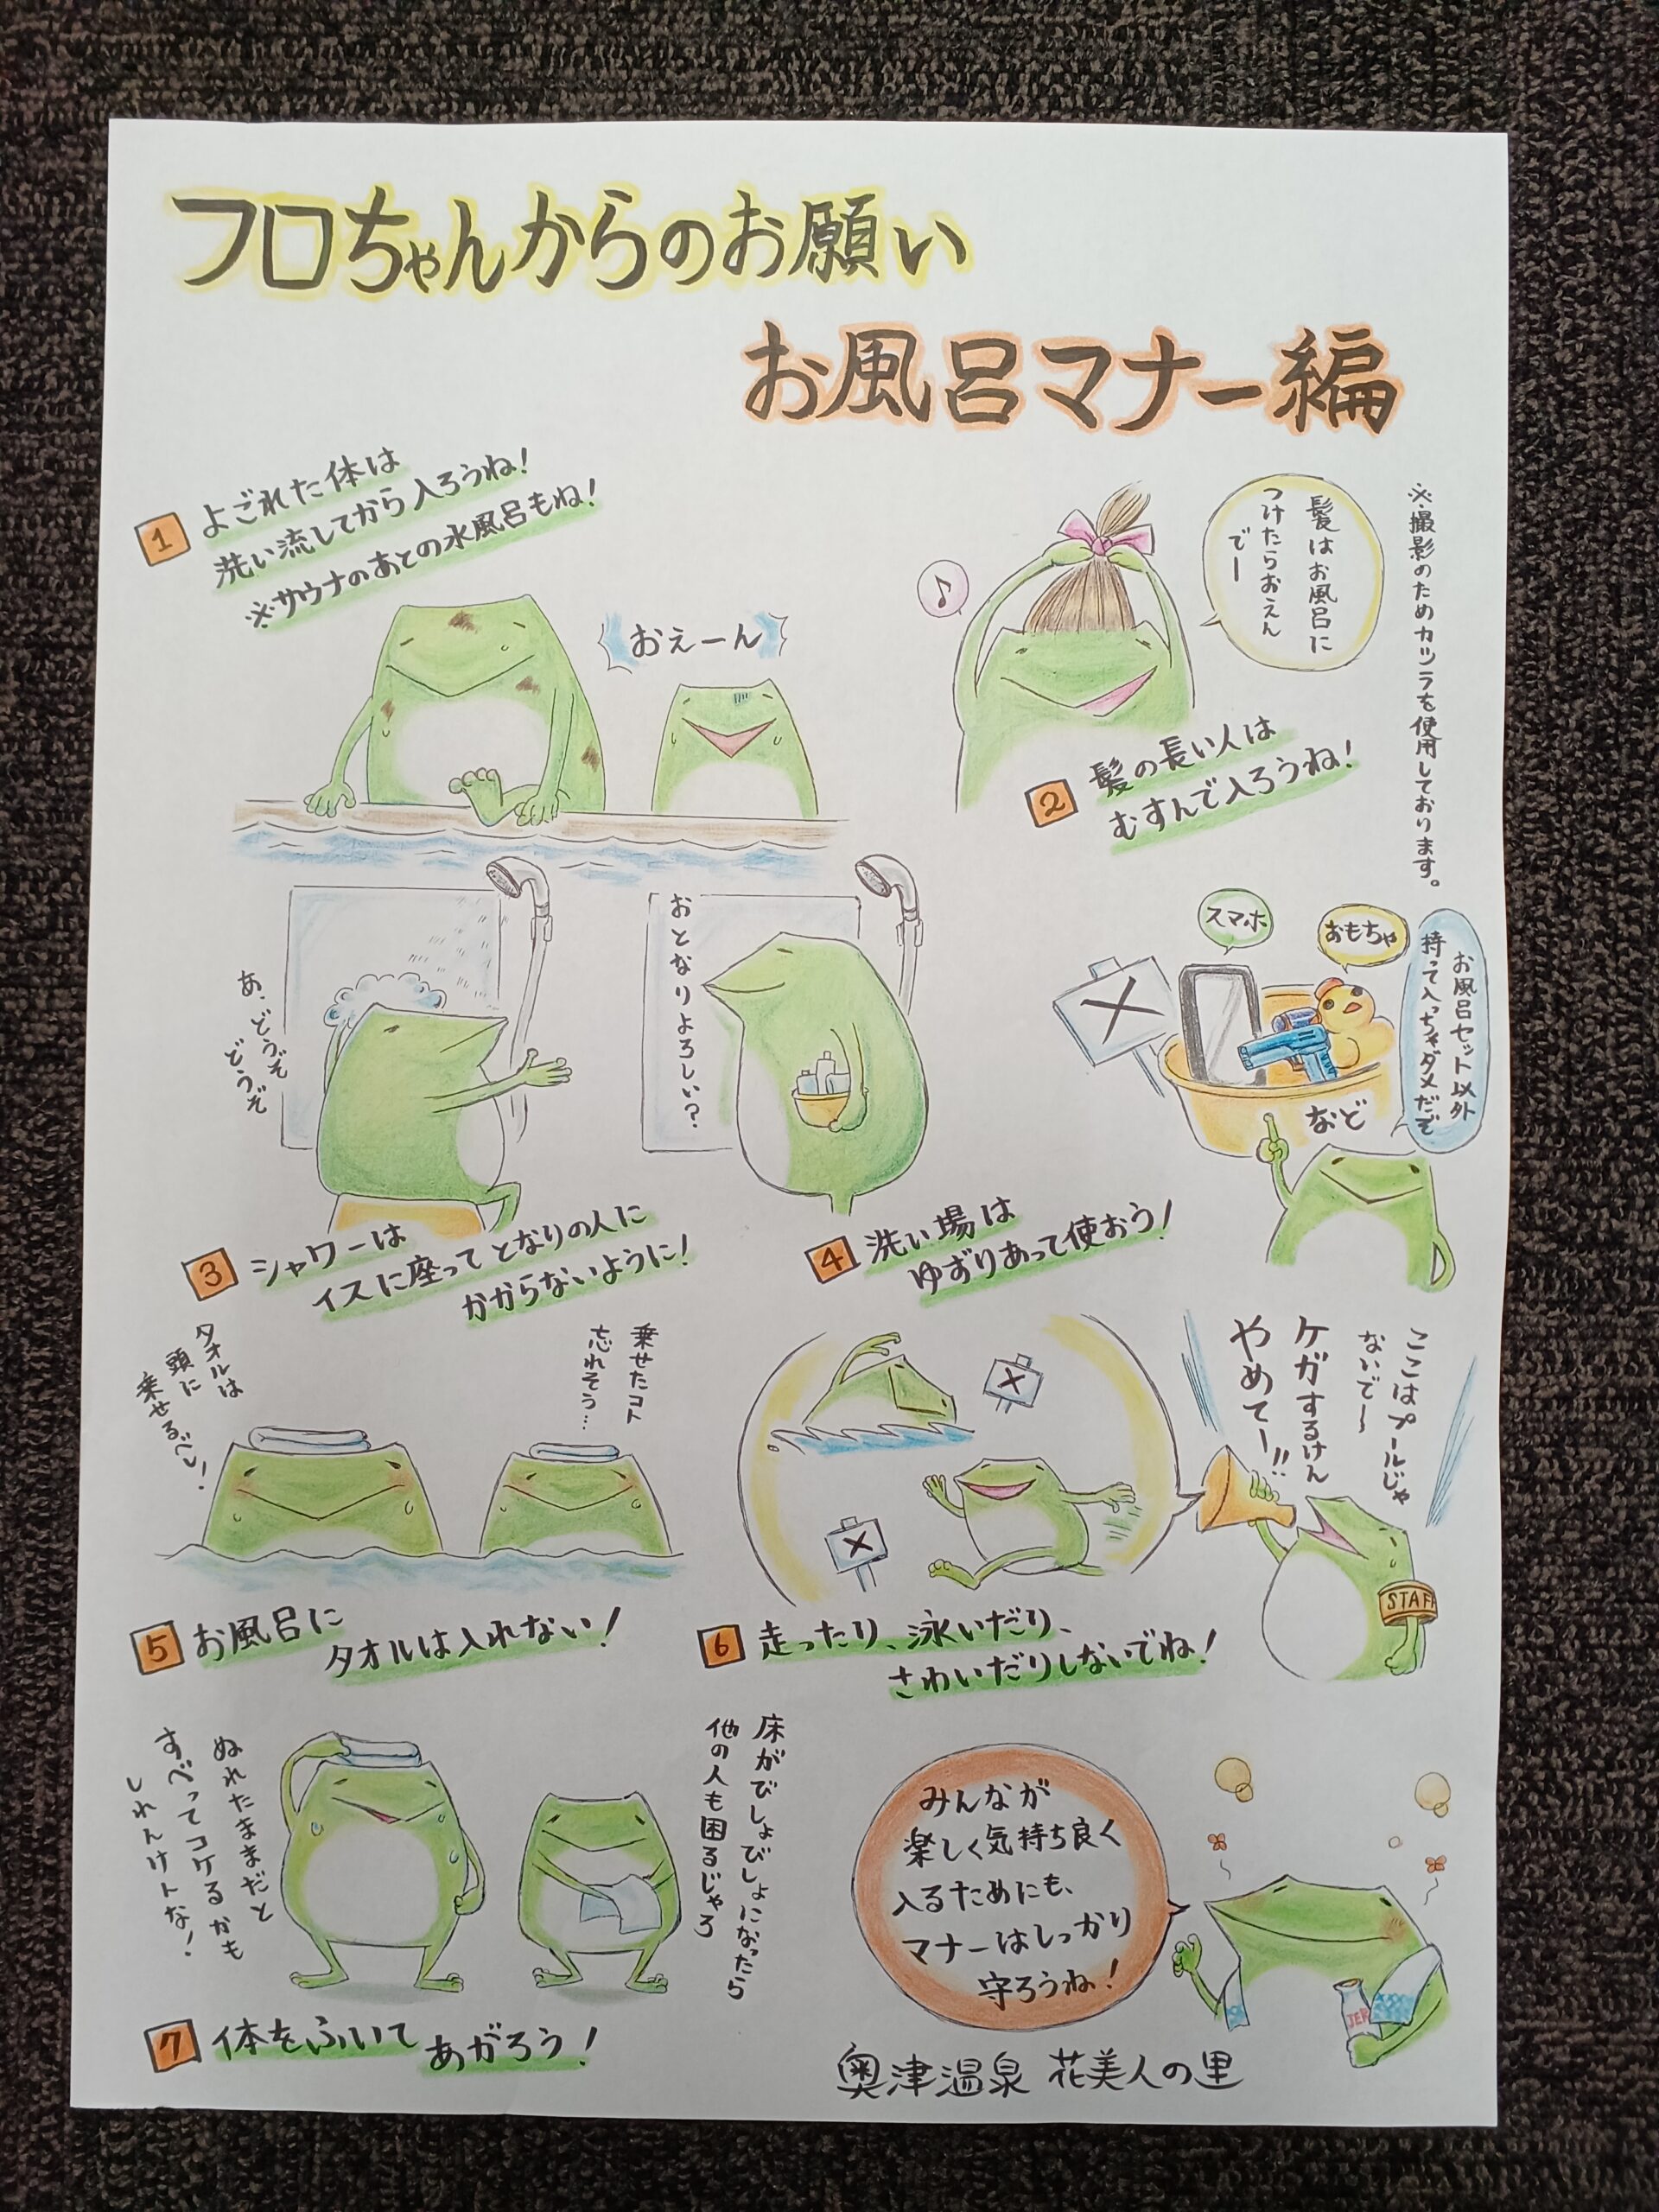 フロちゃんからのお願い
お風呂マナー編
1
よごれた体は
洗い流してから入ろうね!
※サウナのあとの水風呂もね!
おえーん
♪
髪はお風呂に
つけたらおえん
でー
※撮影のためカツラを使用しております。
2
髪の長い人は
むすんで入ろうね!
あ、どうぞ
どうぞ
3
シャワーは
イスに座ってとなりの人に
かからないように!
おとなりよろしい?
4
洗い場は
ゆずりあって使おう!
スマホ
おもちゃ
など
お風呂セット以外
持って入っちゃダメだぞ
タオルは
頭に
乗せるべし!
乗せたコト
忘れそう…
5
お風呂に
タオルは入れない!
ここはプールじゃ
ないで〜
ケガするけん
やめてー!!
STAFF
6
走ったり、泳いだり、
さわいだりしないでね!
ぬれたままだと
すべってコケるかも
しれんけトな!
床がびしょびしょになったら
他の人も困るじゃろ
7
体をふいて
あがろう!
みんなが
楽しく気持ち良く
入るためにも、
マナーはしっかり
守ろうね!
JER
奥津温泉 花美人の里